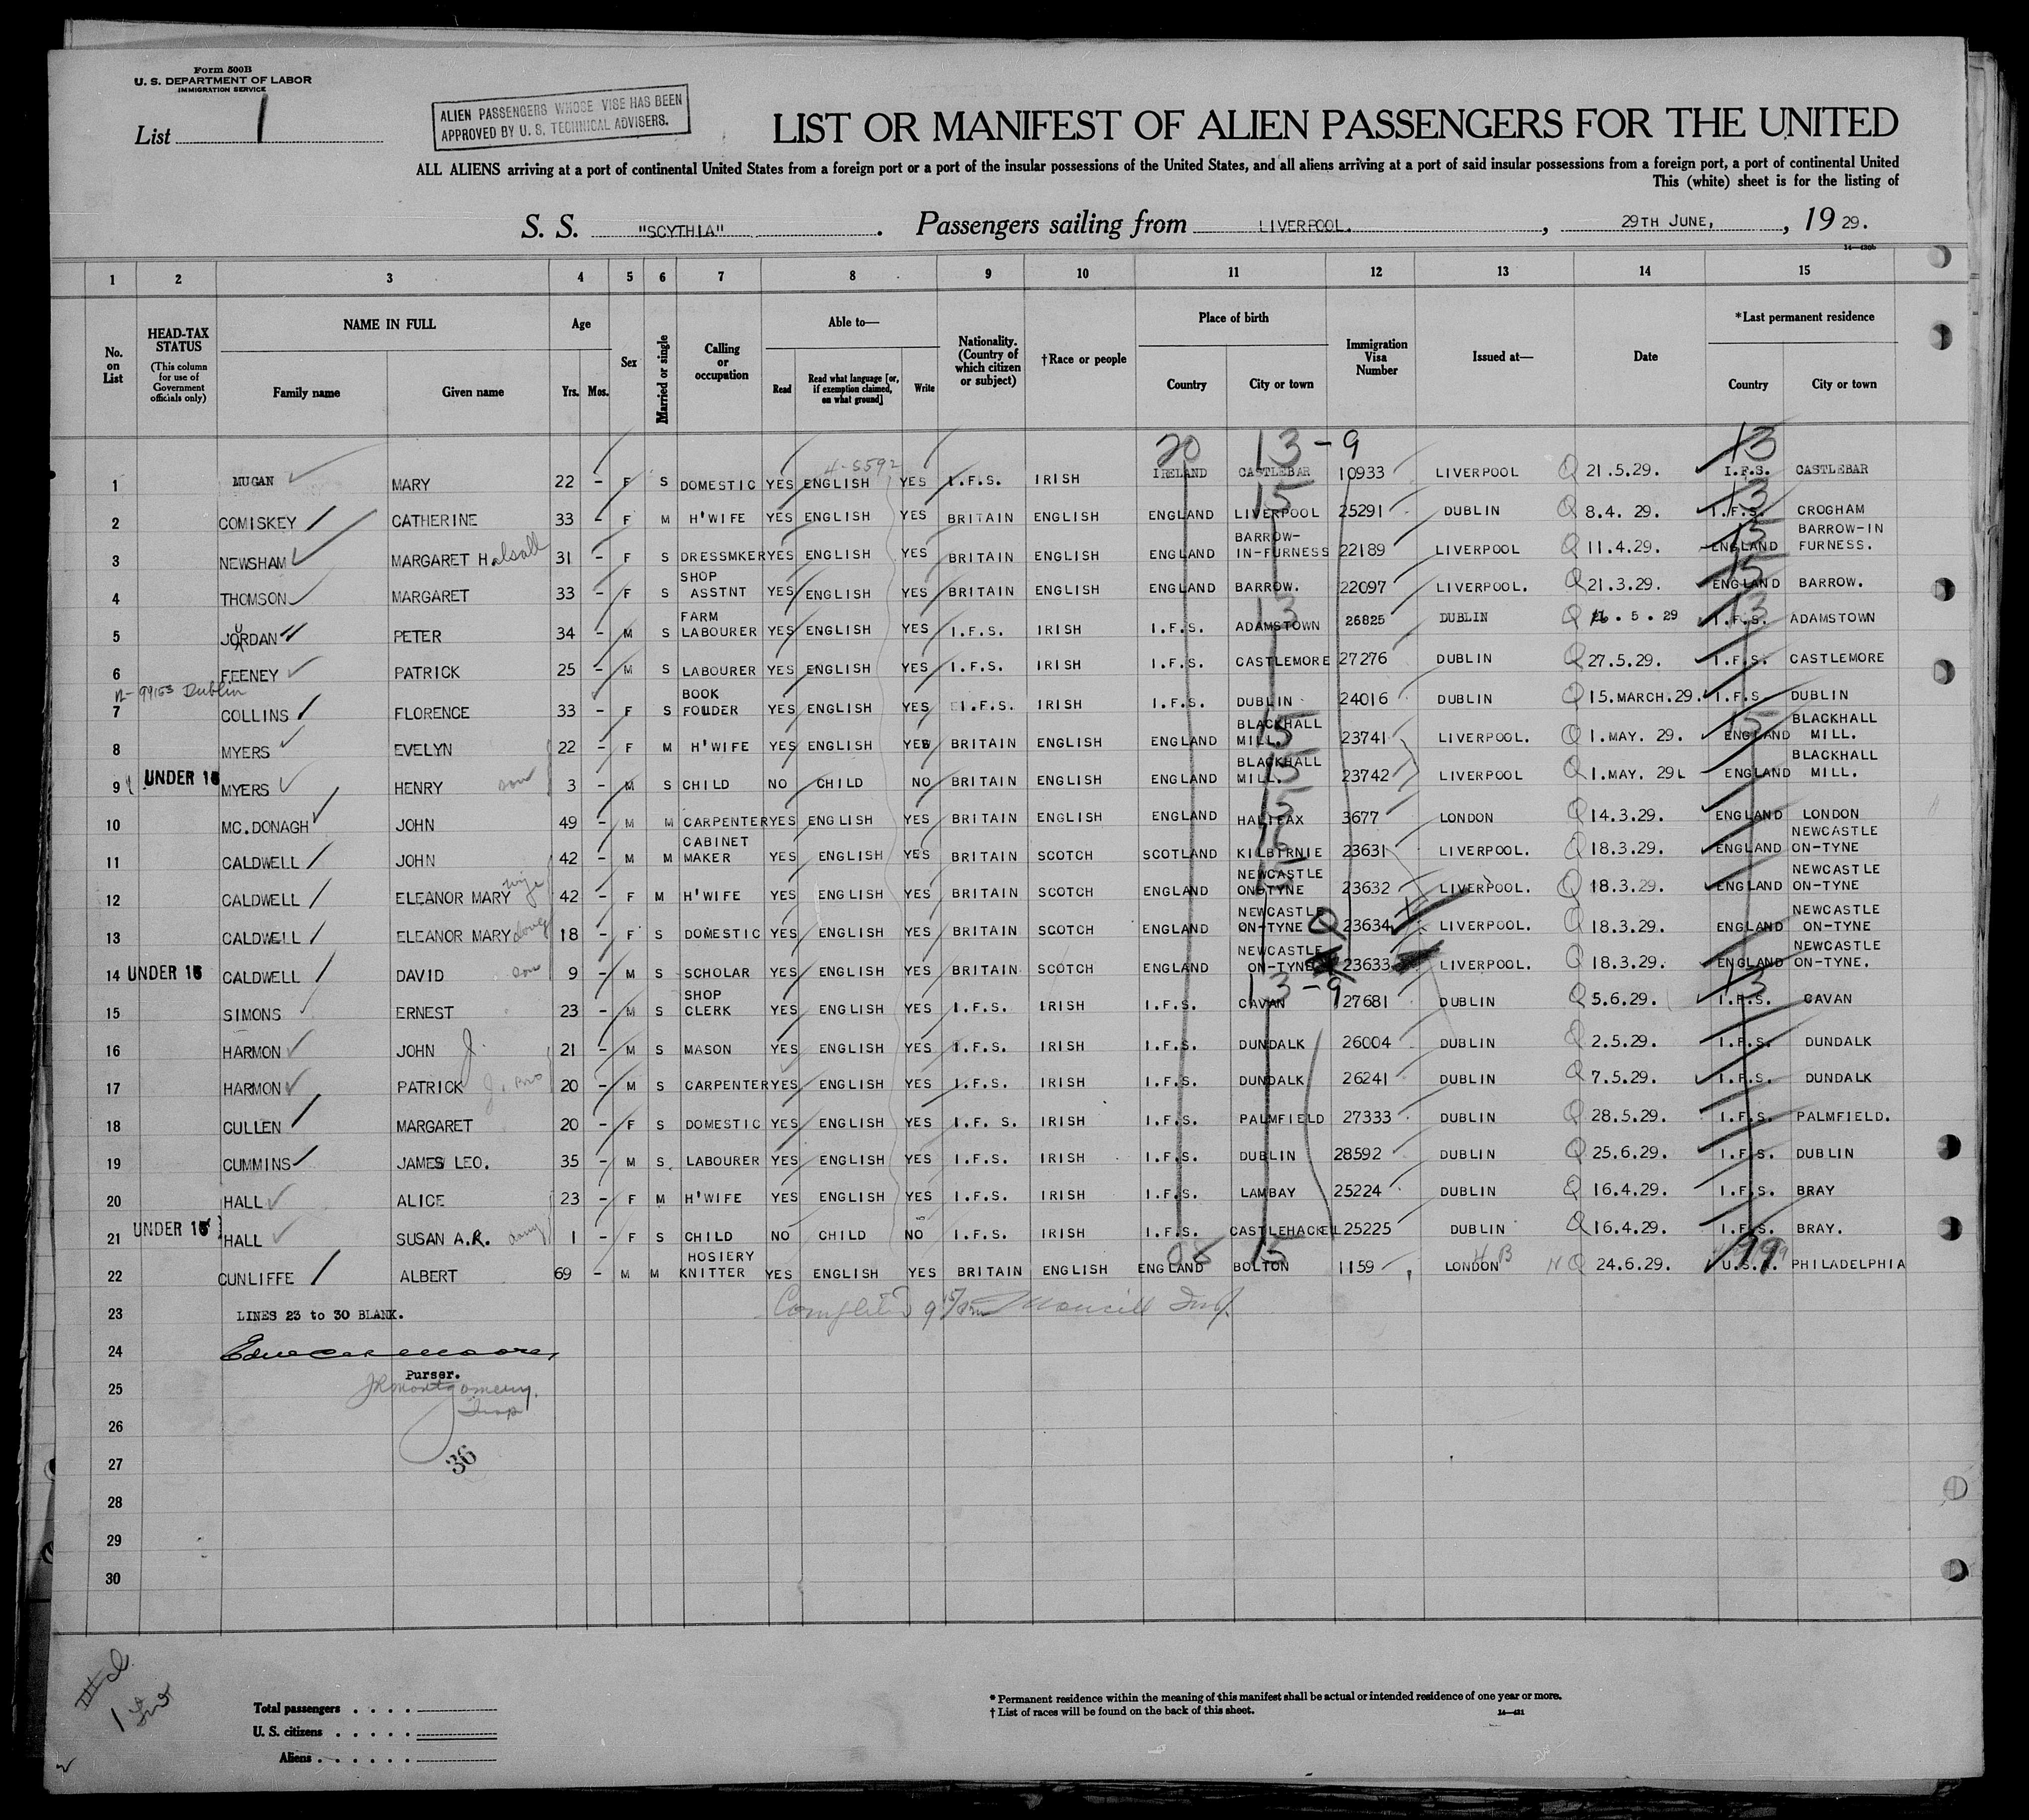 Form 500B
U. S. DEPARTMENT OF LABOR
IMMIGRATION SERVICE
List 1
ALIEN PASSENGERS WHOSE VISE HAS BEEN
APPROVED BY U. S. TECHNICAL ADVISERS.
LIST OR MANIFEST OF ALIEN PASSENGERS FOR THE UNITED
ALL ALIENS arriving at a port of continental United States from a foreign port or a port of the insular possessions of the United States, and all aliens arriving at a port of said insular possessions from a foreign port, a port of continental United
This (white) sheet is for the listing of
S. S. "SCYTHIA" . Passengers sailing from LIVERPOOL. , 29TH JUNE, , 19 29.
14—430b
1 2 3 4 5 6 7 8 9 10 11 12 13 14 15
No. on List HEAD-TAX STATUS (This column for use of Government officials only) NAME IN FULL Family name Given name Age Yrs. Mos. Sex Married or single Calling or occupation Able to— Read Read what language [or, if exemption claimed, on what ground] Write Nationality. (Country of which citizen or subject) †Race or people Place of birth Country City or town Immigration Visa Number Issued at— Date *Last permanent residence Country City or town
20 13-9 13
4-5592
1 MUGAN MARY 22 - F S DOMESTIC YES ENGLISH YES I.F.S. IRISH IRELAND CASTLEBAR 10933 LIVERPOOL Q 21.5.29. I.F.S. CASTLEBAR
2 COMISKEY CATHERINE 33 - F M H'WIFE YES ENGLISH YES BRITAIN ENGLISH ENGLAND LIVERPOOL 15 25291 DUBLIN Q 8.4. 29. I.F.S. 13 CROGHAM
3 NEWSHAM MARGARET Halsall 31 - F S DRESSMKER YES ENGLISH YES BRITAIN ENGLISH ENGLAND BARROW-IN-FURNESS 22189 LIVERPOOL Q 11.4.29. ENGLAND 15 BARROW-IN FURNESS.
4 THOMSON MARGARET 33 - F S SHOP ASSTNT YES ENGLISH YES BRITAIN ENGLISH ENGLAND BARROW. 22097 LIVERPOOL. Q 21.3.29. ENGLAND 15 BARROW.
5 JORDAN U PETER 34 - M S FARM LABOURER YES ENGLISH YES I.F.S. IRISH I.F.S. ADAMSTOWN 13 26825 DUBLIN Q . 5 . 29 I.F.S. 13 ADAMSTOWN
6 FEENEY PATRICK 25 - M S LABOURER YES ENGLISH YES I.F.S. IRISH I.F.S. CASTLEMORE 27276 DUBLIN Q 27.5.29. I.F.S. CASTLEMORE
99153 Dublin
7 COLLINS FLORENCE 33 - F S BOOK FOLDER YES ENGLISH YES I.F.S. IRISH I.F.S. DUBLIN 24016 DUBLIN Q 15.MARCH.29. I.F.S. DUBLIN
8 MYERS EVELYN 22 - F M H'WIFE YES ENGLISH YES BRITAIN ENGLISH ENGLAND BLACKHALL MILL. 15 23741 LIVERPOOL. Q 1.MAY. 29. ENGLAND 15 BLACKHALL MILL.
9 UNDER 16 MYERS HENRY son 3 - M S CHILD NO CHILD NO BRITAIN ENGLISH ENGLAND BLACKHALL MILL. 15 23742 LIVERPOOL Q 1.MAY. 29 ENGLAND BLACKHALL MILL.
10 MC.DONAGH JOHN 49 - M M CARPENTER YES ENGLISH YES BRITAIN ENGLISH ENGLAND HALIFAX 15 3677 LONDON Q 14.3.29. ENGLAND LONDON
11 CALDWELL JOHN 42 - M M CABINET MAKER YES ENGLISH YES BRITAIN SCOTCH SCOTLAND KILBIRNIE 16 23631 LIVERPOOL. Q 18.3.29. ENGLAND NEWCASTLE ON-TYNE
12 CALDWELL ELEANOR MARY wife 42 - F M H'WIFE YES ENGLISH YES BRITAIN SCOTCH ENGLAND NEWCASTLE ON-TYNE 15 23632 LIVERPOOL. Q 18.3.29. ENGLAND NEWCASTLE ON-TYNE
13 CALDWELL ELEANOR MARY daug 18 - F S DOMESTIC YES ENGLISH YES BRITAIN SCOTCH ENGLAND NEWCASTLE ON-TYNE Q 23634 LIVERPOOL. Q 18.3.29. ENGLAND NEWCASTLE ON-TYNE
14 UNDER 16 CALDWELL DAVID son 9 - M S SCHOLAR YES ENGLISH YES BRITAIN SCOTCH ENGLAND NEWCASTLE ON-TYNE 23633 LIVERPOOL. Q 18.3.29. ENGLAND NEWCASTLE ON-TYNE.
15 SIMONS ERNEST 23 - M S SHOP CLERK YES ENGLISH YES I.F.S. IRISH I.F.S. CAVAN 13-9 27681 DUBLIN Q 5.6.29. I.F.S. 13 CAVAN
16 HARMON JOHN J. 21 - M S MASON YES ENGLISH YES I.F.S. IRISH I.F.S. DUNDALK 26004 DUBLIN Q 2.5.29. I.F.S. DUNDALK
17 HARMON PATRICK J. Bro 20 - M S CARPENTER YES ENGLISH YES I.F.S. IRISH I.F.S. DUNDALK 26241 DUBLIN Q 7.5.29. I.F.S. DUNDALK
18 CULLEN MARGARET 20 - F S DOMESTIC YES ENGLISH YES I.F. S. IRISH I.F.S. PALMFIELD 27333 DUBLIN Q 28.5.29. I.F.S. PALMFIELD.
19 CUMMINS JAMES LEO. 35 - M S. LABOURER YES ENGLISH YES I.F.S. IRISH I.F.S. DUBLIN 28592 DUBLIN Q 25.6.29. I.F.S. DUBLIN
20 HALL ALICE 23 - F M H'WIFE YES ENGLISH YES I.F.S. IRISH I.F.S. LAMBAY 25224 DUBLIN Q 16.4.29. I.F.S. BRAY
21 UNDER 16 HALL SUSAN A.R. daug 1 - F S CHILD NO CHILD NO I.F.S. IRISH I.F.S. CASTLEHACKEL 25225 DUBLIN Q 16.4.29. I.F.S. BRAY.
22 CUNLIFFE ALBERT 69 - M M HOSIERY KNITTER YES ENGLISH YES BRITAIN ENGLISH ENGLAND 08 BOLTON 15 1159 LONDON NQ 24.6.29. U.S.A. 99 PHILADELPHIA
23 LINES 23 to 30 BLANK. Completed
24
Purser.
25 JRMontgomery.
Insp
26
27 36
28
29
30
Total passengers . . . .
U. S. citizens . . . . .
Aliens . . . . . .
* Permanent residence within the meaning of this manifest shall be actual or intended residence of one year or more.
† List of races will be found on the back of this sheet.
14—421